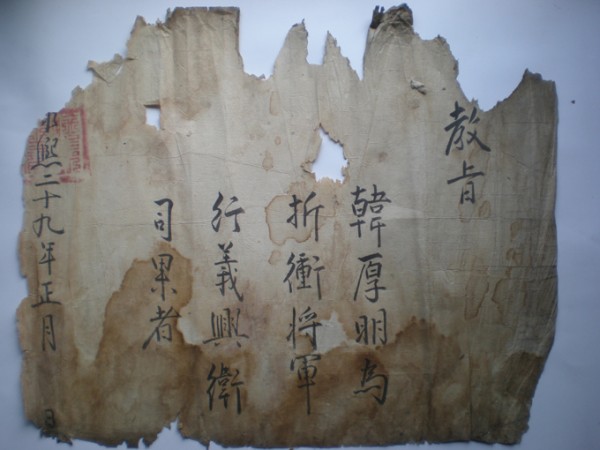 教旨
韓厚明為
折衝将軍
行義興衛
司果者
康熙二十九年正月 日